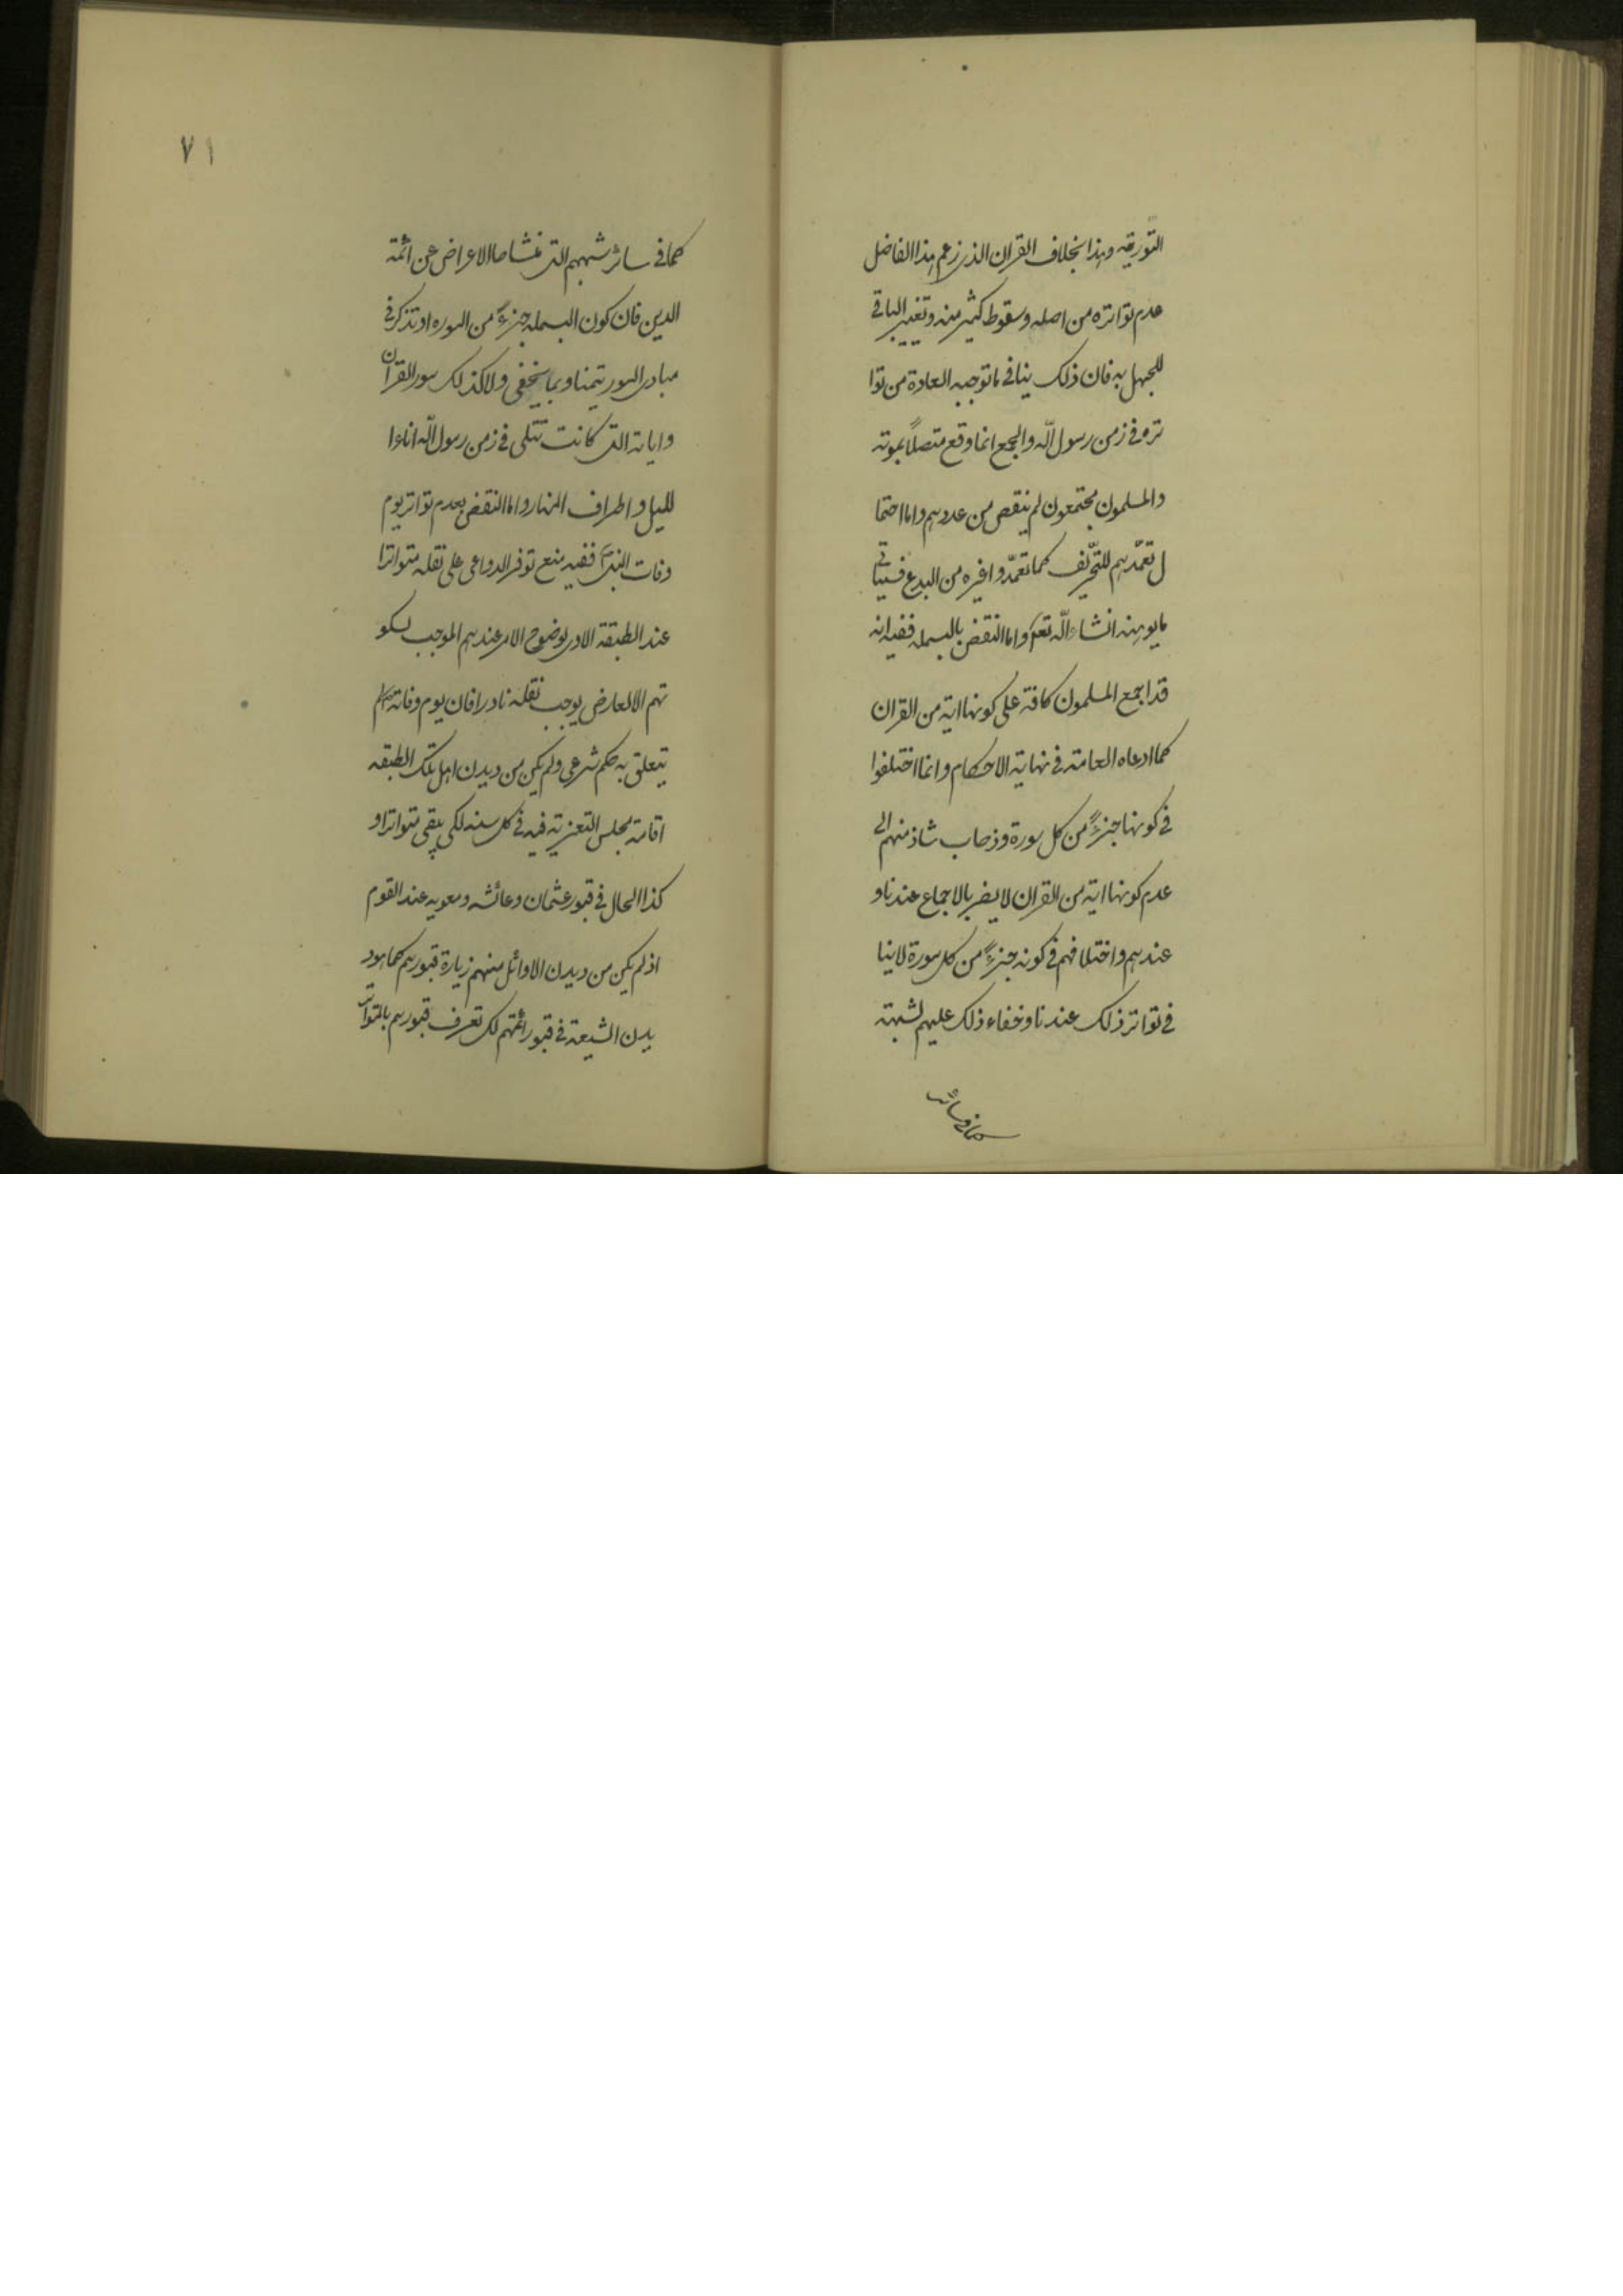 التورية وهذا بخلاف القران الذي زعم هذا الفاضل
عدم تواتره من اصله وسقوط كثير منه وتغيير الباقي
للجهل به فان ذلك ينافي ماتوجبه العادة من توا
تره في زمن رسول الله والجمع انما وقع متصلاً بموته
والمسلمون مجتمعون لم ينقص من عددهم واما احتما
ل تعمّدهم للتحريف كما تعمّدوا غيره من البدع فسياتي
مايوهنه انشاء الله تعم واما النقض بالبسمله ففيه انه
قد اجمع المسلمون كافة على كونها اية من القران
كما ادعاه العامة في نهاية الاحكام وانما اختلفوا
في كونها جزءً من كل سورة وذهاب شاذ منهم الى
عدم كونها اية من القران لايضر بالاجماع عندنا و
عندهم واختلافهم في كونه جزءً من كل سورة لاينا
في تواتر ذلك عندنا وخفاء ذلك عليهم لشبهة
كما في سائر
٧١
كما في سائر شبههم التي منشاها الاعراض عن ائمة
الدين فان كون البسمله جزءً من السوره او تذكر في
مبادى السور تيمنا وبما يخفى ولا كذلك سور القران
واياته التي كانت تتلى في زمن رسول الله اناء ا
لليل واطراف النهار واما النقض بعدم تواتر يوم
وفات النبي ففيه منع توفر الدواعي على نقله متواترا
عند الطبقة الاولى لوضوح الامر عندهم الموجب لسكو
تهم الا لعارض يوجب نقله نادرا فان يوم وفاته لم
يتعلق به حكم شرعي ولم يكن من ديدن اهل تلك الطبقه
اقامة مجلس التعزية فيه في كل سنه لكي يبقى متواترا و
كذا الحال في قبور عثمان وعائشه ومعويه عند القوم
اذ لم يكن من ديدن الاوائل منهم زيارة قبورهم كما هو د
يدن الشيعة في قبور ائمتهم لكي تعرف قبورهم بالتواتر